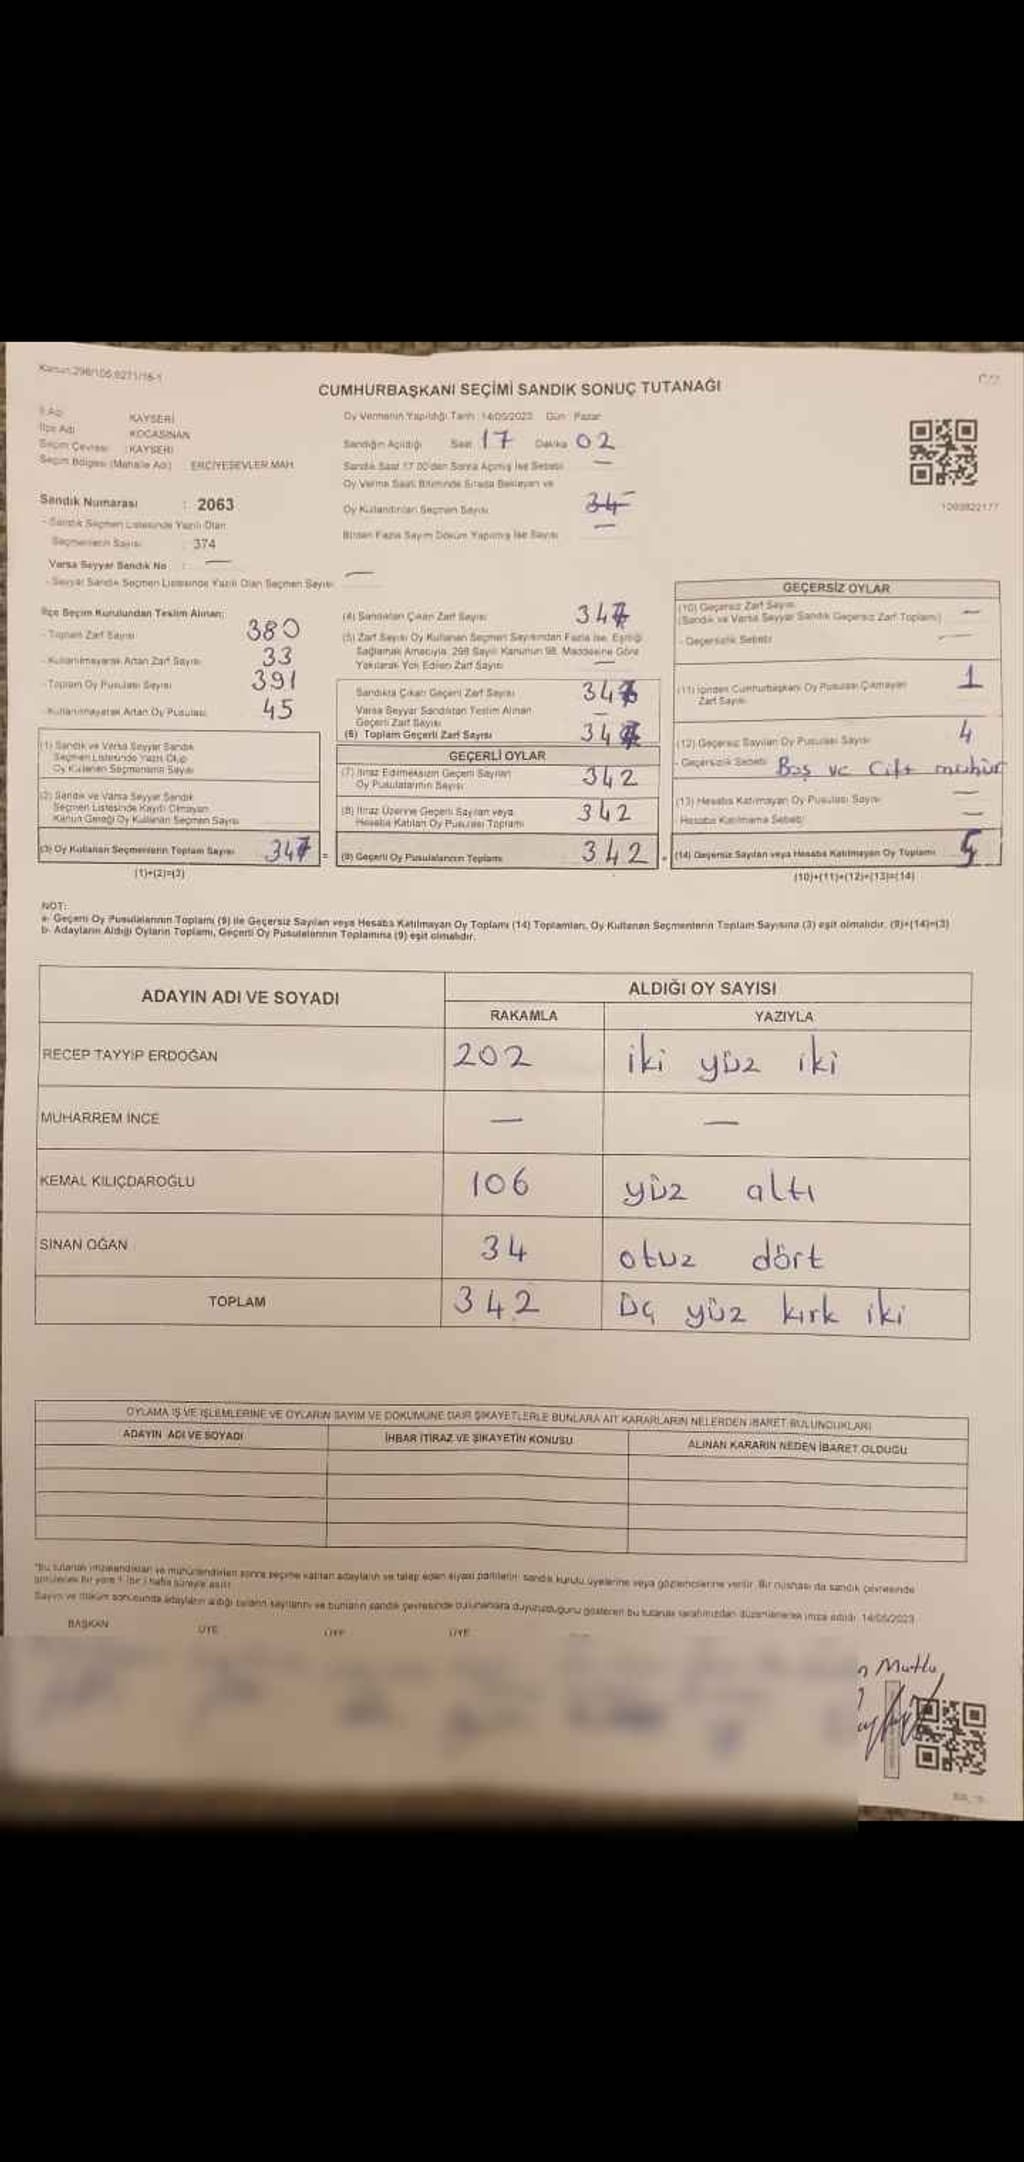 Kanun:298/105,6271/16-1
CUMHURBAŞKANI SEÇİMİ SANDIK SONUÇ TUTANAĞI
İl Adı KAYSERİ
İlçe Adı KOCASİNAN
Seçim Çevresi : KAYSERİ
Seçim Bölgesi (Mahalle Adı) : ERCİYESEVLER MAH.
Oy Vermenin Yapıldığı Tarih : 14/05/2023 Gün : Pazar
Sandığın Açıldığı Saat 17 Dakika 02
Sandık Saat 17.00'den Sonra Açılmış İse Sebebi —
Oy Verme Saati Bitiminde Sırada Bekleyen ve
Oy Kullandırılan Seçmen Sayısı 34
Birden Fazla Sayım Döküm Yapılmış İse Sayısı —
1093822177
Sandık Numarası : 2063
- Sandık Seçmen Listesinde Yazılı Olan
Seçmenlerin Sayısı : 374
Varsa Seyyar Sandık No : —
- Seyyar Sandık Seçmen Listesinde Yazılı Olan Seçmen Sayısı —
İlçe Seçim Kurulundan Teslim Alınan:
- Toplam Zarf Sayısı 380
- Kullanılmayarak Artan Zarf Sayısı 33
- Toplam Oy Pusulası Sayısı 391
- Kullanılmayarak Artan Oy Pusulası 45
(1) Sandık ve Varsa Seyyar Sandık
Seçmen Listesinde Yazılı Olup
Oy Kullanan Seçmenlerin Sayısı
(2) Sandık ve Varsa Seyyar Sandık
Seçmen Listesinde Kaydı Olmayan
Kanun Gereği Oy Kullanan Seçmen Sayısı
(3) Oy Kullanan Seçmenlerin Toplam Sayısı 347 =
(1)+(2)=(3)
(4) Sandıktan Çıkan Zarf Sayısı 347
(5) Zarf Sayısı Oy Kullanan Seçmen Sayısından Fazla İse, Eşitliği
Sağlamak Amacıyla, 298 Sayılı Kanunun 98. Maddesine Göre
Yakılarak Yok Edilen Zarf Sayısı —
Sandıkta Çıkan Geçerli Zarf Sayısı 347
Varsa Seyyar Sandıktan Teslim Alınan
Geçerli Zarf Sayısı —
(6) Toplam Geçerli Zarf Sayısı 347
GEÇERLİ OYLAR
(7) İtiraz Edilmeksizin Geçerli Sayılan
Oy Pusulalarının Sayısı 342
(8) İtiraz Üzerine Geçerli Sayılan veya
Hesaba Katılan Oy Pusulası Toplamı 342
(9) Geçerli Oy Pusulalarının Toplamı 342 +
GEÇERSİZ OYLAR
(10) Geçersiz Zarf Sayısı
(Sandık ve Varsa Seyyar Sandık Geçersiz Zarf Toplamı) —
- Geçersizlik Sebebi —
(11) İçinden Cumhurbaşkanı Oy Pusulası Çıkmayan
Zarf Sayısı 1
(12) Geçersiz Sayılan Oy Pusulası Sayısı 4
- Geçersizlik Sebebi Boş ve Çift mühür
(13) Hesaba Katılmayan Oy Pusulası Sayısı —
- Hesaba Katılmama Sebebi —
(14) Geçersiz Sayılan veya Hesaba Katılmayan Oy Toplamı 5
(10)+(11)+(12)+(13)=(14)
NOT:
a- Geçerli Oy Pusulalarının Toplamı (9) ile Geçersiz Sayılan veya Hesaba Katılmayan Oy Toplamı (14) Toplamları, Oy Kullanan Seçmenlerin Toplam Sayısına (3) eşit olmalıdır. (9)+(14)=(3)
b- Adayların Aldığı Oyların Toplamı, Geçerli Oy Pusulalarının Toplamına (9) eşit olmalıdır.
ADAYIN ADI VE SOYADI ALDIĞI OY SAYISI
RAKAMLA YAZIYLA
RECEP TAYYİP ERDOĞAN 202 iki yüz iki
MUHARREM İNCE — —
KEMAL KILIÇDAROĞLU 106 yüz altı
SİNAN OĞAN 34 otuz dört
TOPLAM 342 Üç yüz kırk iki
OYLAMA İŞ VE İŞLEMLERİNE VE OYLARIN SAYIM VE DÖKÜMÜNE DAİR ŞİKAYETLERLE BUNLARA AİT KARARLARIN NELERDEN İBARET BULUNDUKLARI
ADAYIN ADI VE SOYADI İHBAR İTİRAZ VE ŞİKAYETİN KONUSU ALINAN KARARIN NEDEN İBARET OLDUĞU
*Bu tutanak imzalandıktan ve mühürlendikten sonra seçime katılan adayların ve talep eden siyasi partilerin sandık kurulu üyelerine veya gözlemcilerine verilir. Bir nüshası da sandık çevresinde
görülecek bir yere 1 (bir) hafta süreyle asılır.
Sayım ve döküm sonucunda adayların aldığı oyların sayılarını ve bunların sandık çevresinde bulunanlara duyurulduğunu gösteren bu tutanak tarafımızdan düzenlenerek imza edildi. 14/05/2023
BAŞKAN ÜYE ÜYE ÜYE
Mutlu